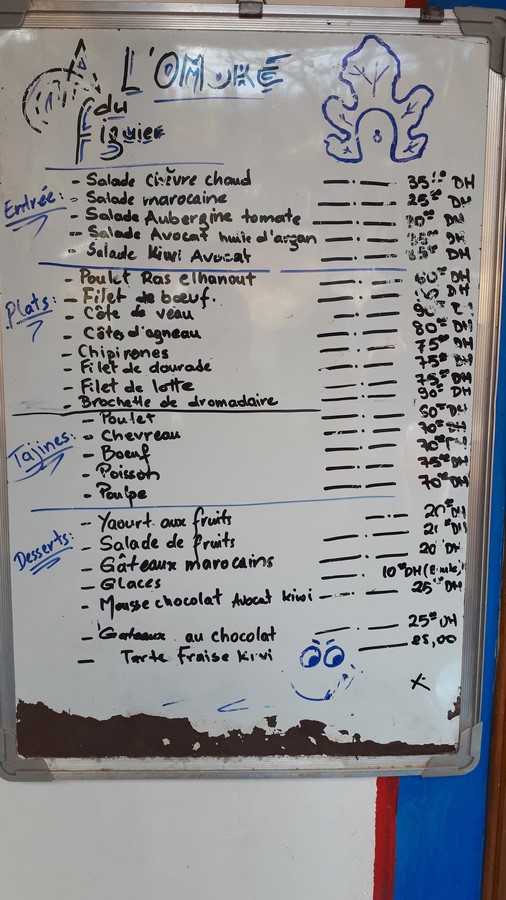 L'OMBRE
du
figuier
Entrée:
- Salade Chèvre chaud 35 DH
- Salade marocaine 25 DH
- Salade Aubergine tomate DH
- Salade Avocat huile d'argan DH
- Salade Kiwi Avocat DH
Plats:
- Poulet Ras elhanout 60 DH
- Filet de bœuf. DH
- Côte de veau
- Côtes d'agneau 80 DH
- Chipirones 75 DH
- Filet de dourade 75 DH
- Filet de lotte 75 DH
- Brochette de dromadaire 90 DH
Tajines:
- Poulet DH
- Chevreau DH
- Bœuf 70
- Poisson 75 DH
- Poulpe 70 DH
Desserts:
- Yaourt aux fruits 20 DH
- Salade de fruits DH
- Gâteaux marocains 20 DH
- Glaces 10 DH
- Mousse chocolat Avocat kiwi 25 DH
- Gateaux au chocolat 25 DH
- Tarte Fraise Kiwi 25,00